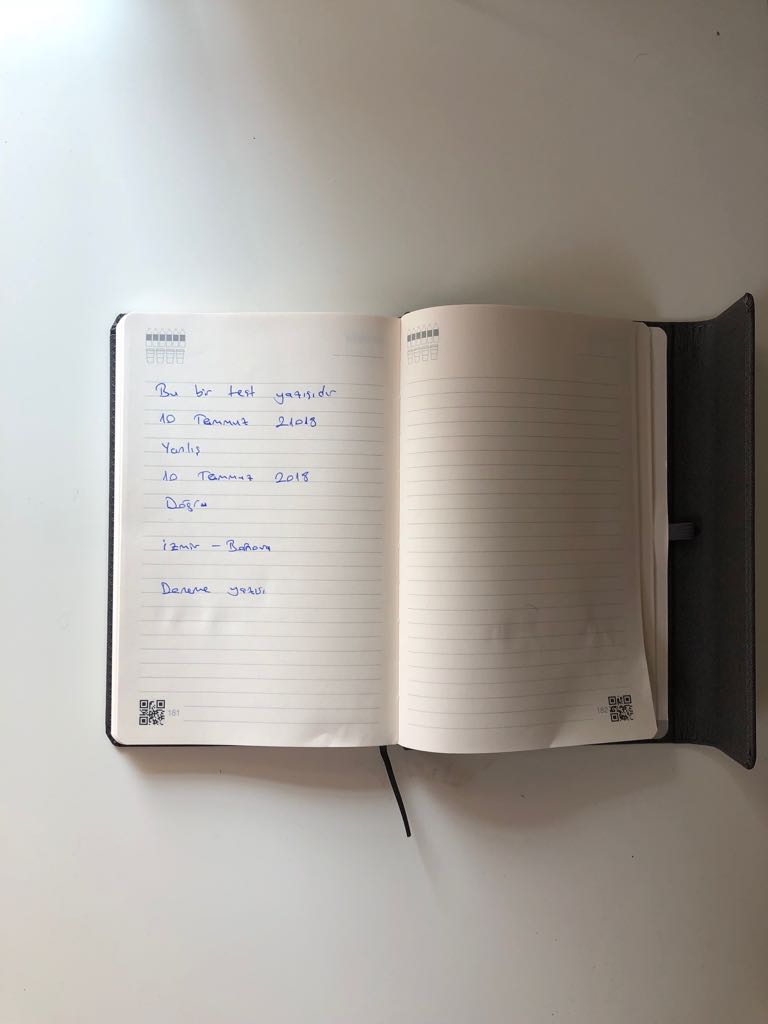 Bu bir test yazısıdır
10 Temmuz 21018
Yanlış
10 Temmuz 2018
Doğru
izmir - Bornova
Deneme yazısı
181
182